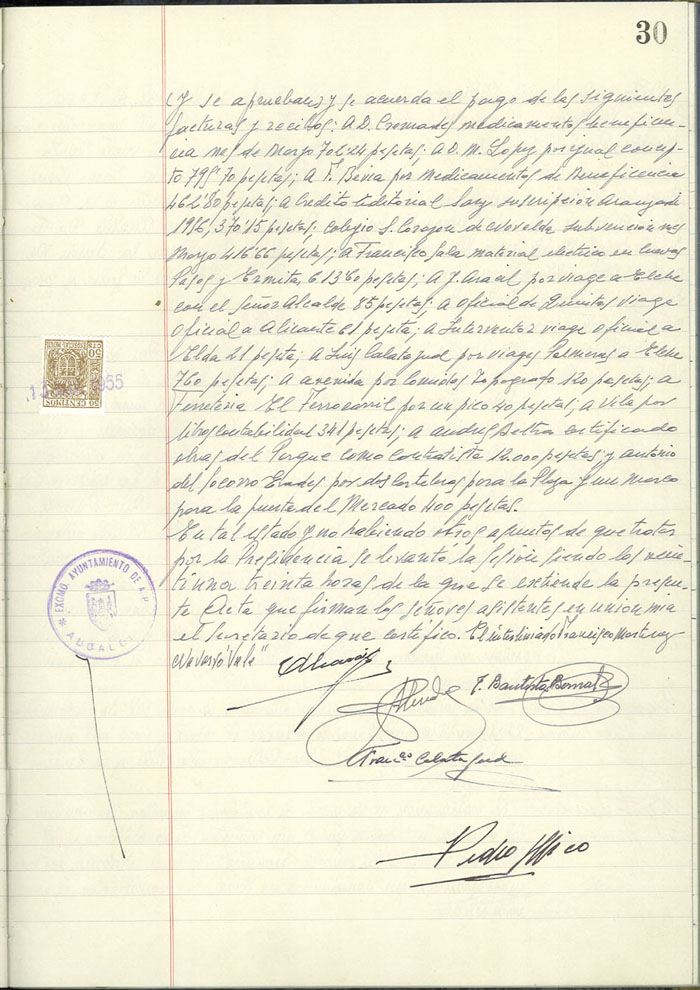 30
(Y se aprueban) y se acuerda el pago de las siguientes
facturas y recibos: A D. Cremades medicamentos beneficen-
cia mes de Marzo 706'24 pesetas; a D. M. Lopez por igual concep-
to 795'70 pesetas; A F. Beina por Medicamentos de Beneficencia
462'80 pesetas; A Credito Editorial suscripción Aranzadi
1956, 370'15 pesetas; colegio S. Corazon de Novelda subvención mes
Marzo 416'66 pesetas; A Francisco Sala material electrico en cuevas
Pasos y Ermitas 613'60 pesetas; A J. por viage a Elche
con el Señor Alcalde 85 pesetas; a Oficial de Quintas viage
Oficial a Alicante 61 peseta; a Interventor viage Oficial a
Elda 21 peseta; A Luis Calatayud por viages Palmeras a Elche
760 pesetas; A avenida por Comidas Topografo 120 pesetas; a
Ferreteria El Ferrocarril por un pico 40 pesetas; a Vila por
libros contabilidad 341 pesetas; a Andres Beltra certificado
obras del Parque como contratista 12.000 pesetas; y antonio
del Socorro por dos carteleras para la Plaza y un marco
para la puerta del Mercado 400 pesetas.
En tal estado y no habiendo otros asuntos de que tratar
por la Presidencia se levantó la sesión siendo las vein-
tiuna treinta horas de la que se extiende la presen-
te Acta que firman los señores asistentes en union mia
el Secretario de que certifico. El interliniado Francisco Martinez
Navarro "Vale"
50
CTS
50 CENTIMOS
EXCMO. AYUNTAMIENTO DE
ALCALDIA
F. Bautista Bernabé
Franco. Calatayud
Pedro